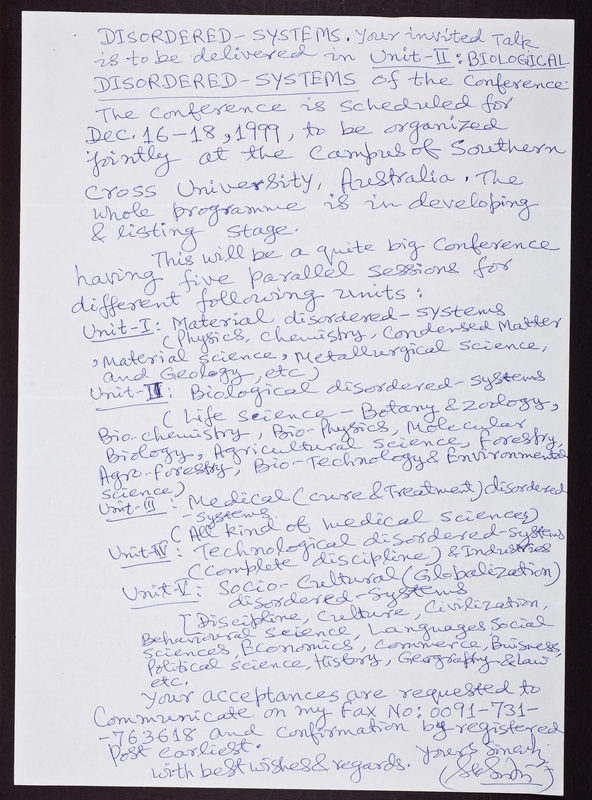 DISORDERED-SYSTEMS. Your invited Talk
is to be delivered in Unit-II: BIOLOGICAL
DISORDERED-SYSTEMS of the Conference.
The Conference is scheduled for
Dec. 16-18, 1999, to be organized
jointly at the Campus of Southern
Cross University, Australia. The
whole programme is in developing
& listing stage.
This will be a quite big Conference
having five parallel sessions for
different following units:
Unit-I: Material disordered-systems
(Physics, Chemistry, Condensed Matter
, Material science, Metallurgical science,
and Geology, etc)
Unit-II: Biological disordered-systems
(Life science - Botany & Zoology,
Bio-chemistry, Bio-Physics, Molecular
Biology, Agricultural science, Forestry,
Agro-forestry, Bio-Technology & Environmental
science)
Unit-III: Medical (cure & Treatment) disordered
-systems
(All kind of medical sciences)
Unit-IV: Technological disordered-systems
(complete discipline) & Industries
Unit-V: Socio-Cultural (Globalization)
disordered-systems
[Discipline, Culture, Civilization,
Behavioural science, Languages Social
sciences, Economics, Commerce, Buisness,
Political science, History, Geography & Law
etc.
Your acceptances are requested to
Communicate on my Fax No: 0091-731-
-763618 and confirmation by registered
Post earliest.
with best wishes & regards. Yours Sincerely